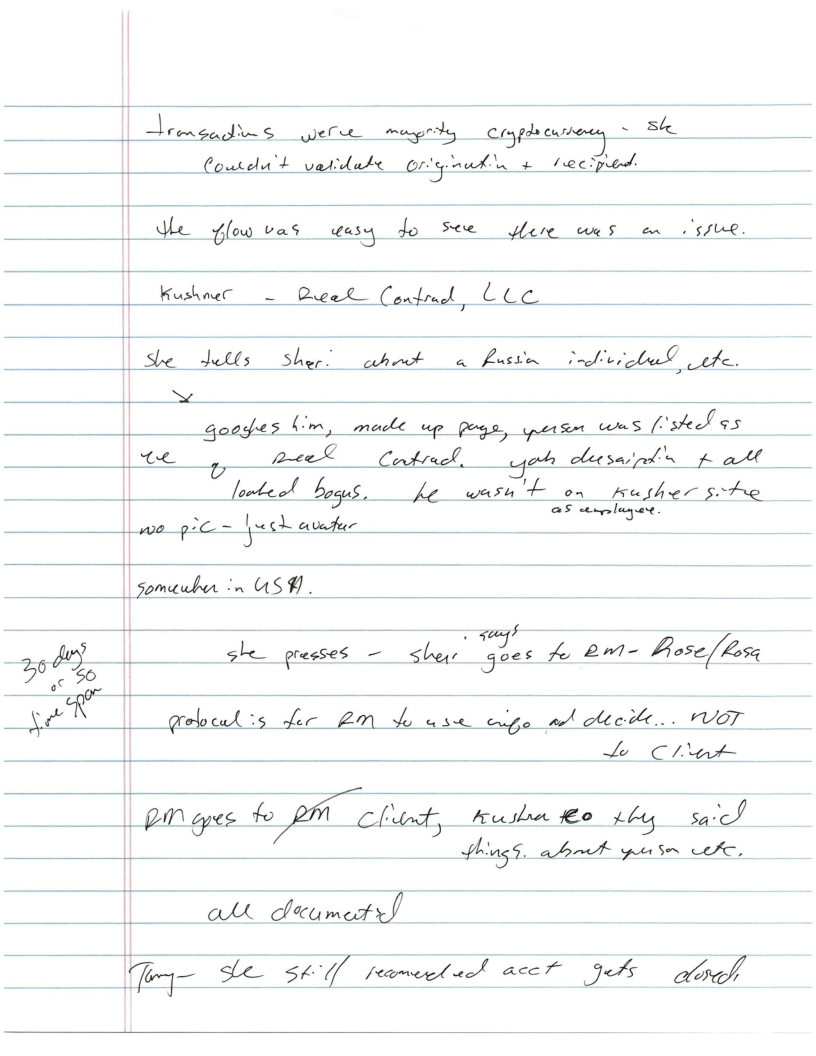 transactions were majority cryptocurrency - she
couldn't validate origination + recipient.
the flow was easy to see there was an issue.
Kushner - Real Contrad, LLC
she tells sheri about a Russia individual, etc.
googles him, made up page, person was listed as
Real Contrad. job description + all
looked bogus. he wasn't on Kusher site
as employee.
no pic - just avatar
somewher in USA.
says
she presses - sheri goes to RM - Rose/Rosa
30 days
or so
time span
protocal is for RM to use info and decide... NOT
to Client
RM goes to RM Client, Kushner Co they said
things. about person etc.
all documented
Tony - she still recomended acct gets closed.